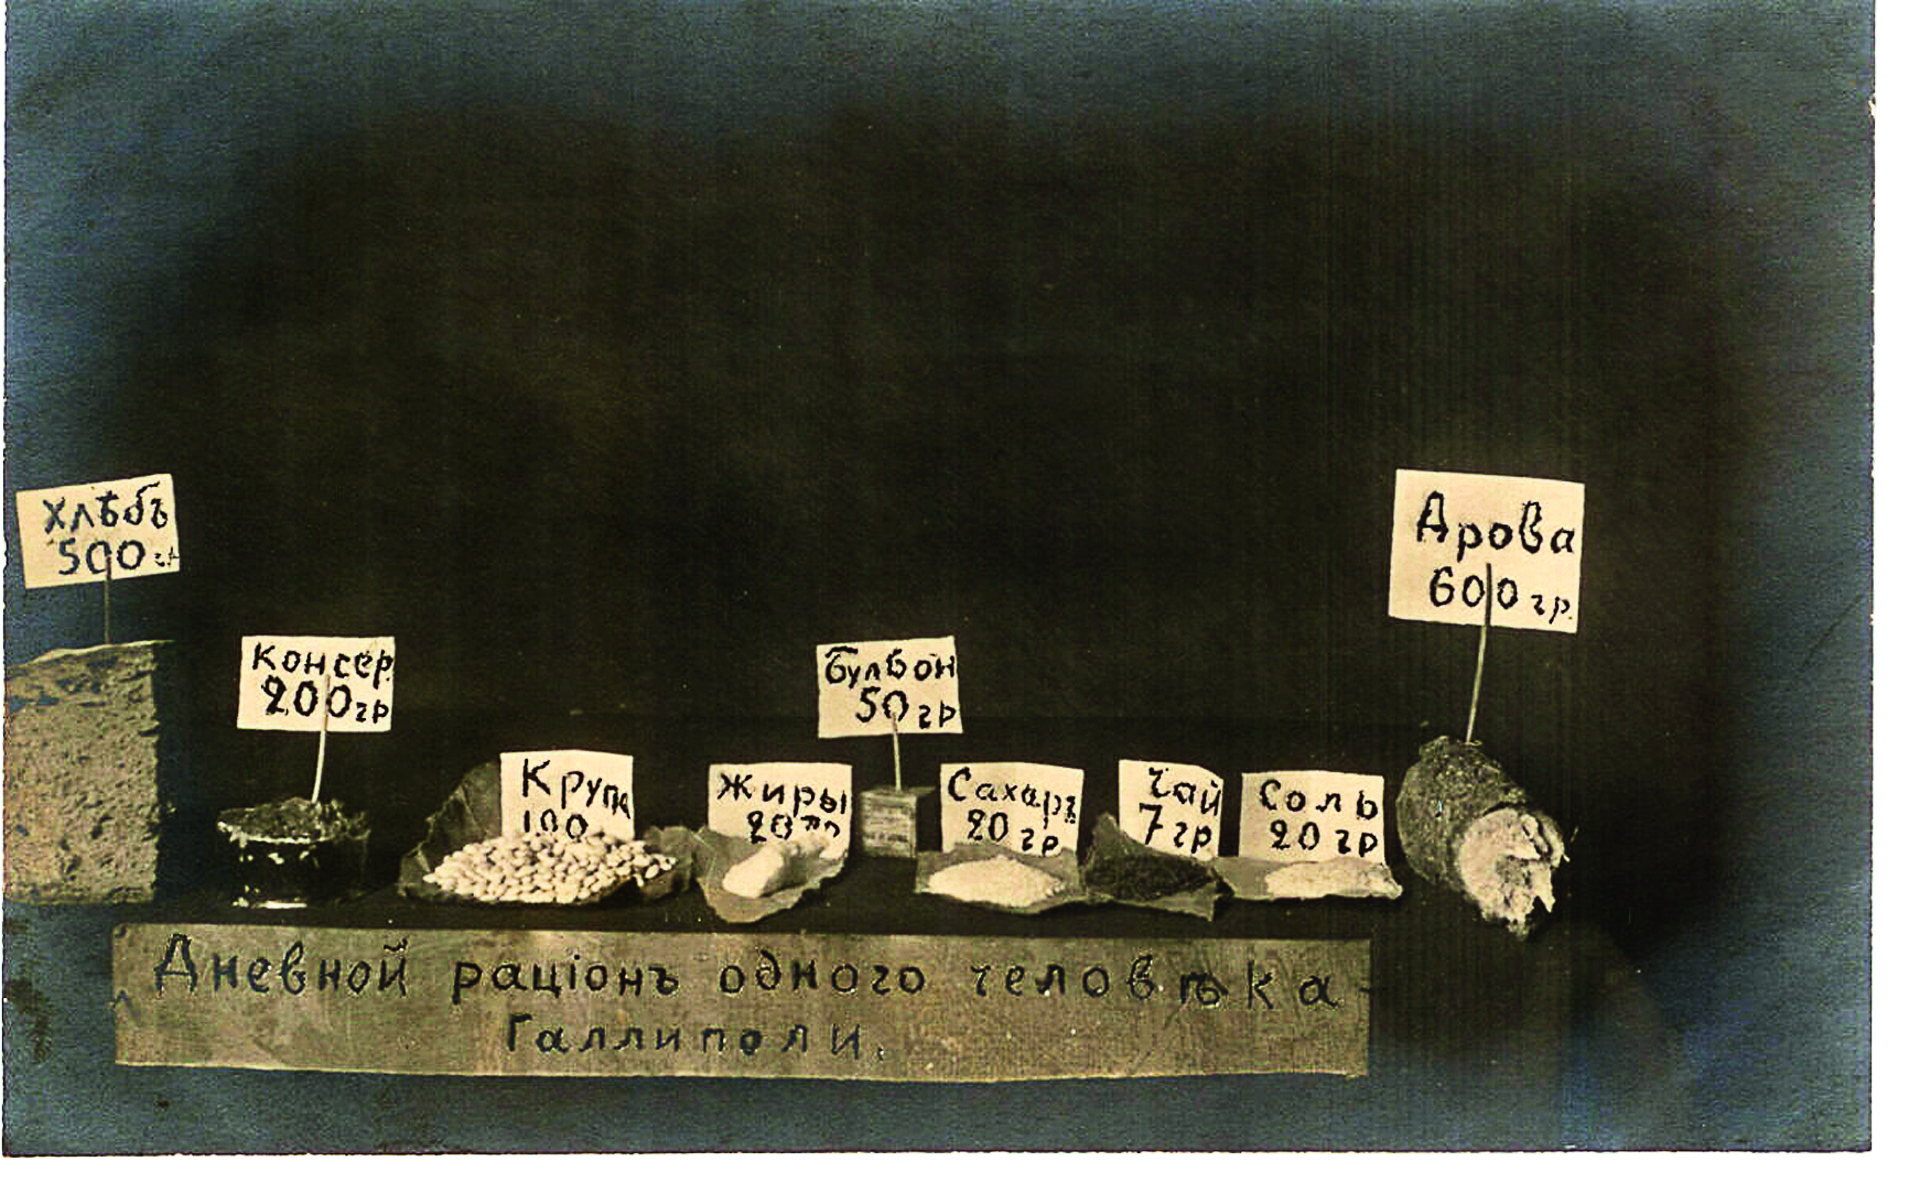 Хлѣбъ
500 гр
Консер.
200 гр
Крупа
100
Жиры
20 гр
Булбон
50 гр
Сахаръ
20 гр
Чай
7 гр
Соль
20 гр
Дрова
600 гр.
Дневной раціонъ одного человѣка-
Галлиполи.